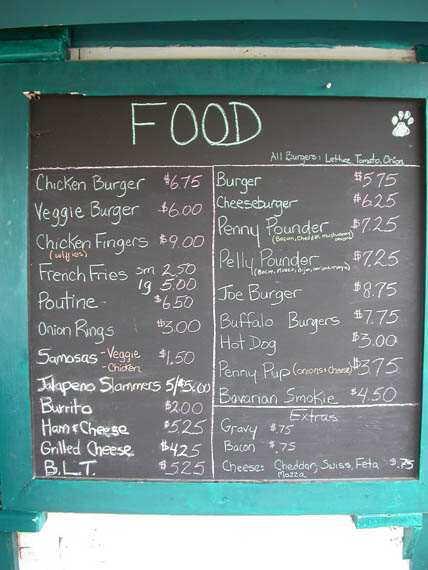 FOOD
All Burgers: Lettuce, Tomato, Onion
Chicken Burger $6.75
Veggie Burger $6.00
Chicken Fingers $9.00
(w/fries)
French Fries sm 2.50
lg 5.00
Poutine $6.50
Onion Rings $3.00
Samosas - Veggie $1.50
- Chicken
Jalapeno Slammers 5/$5.00
Burrito $2.00
Ham & Cheese $5.25
Grilled Cheese $4.25
B.L.T. $5.25
Burger $5.75
Cheeseburger $6.25
Penny Pounder $7.25
(Bacon, Cheddar, mushrooms
Pelly Pounder $7.25
(Bacon, Mozza,
Joe Burger $8.75
Buffalo Burgers $7.75
Hot Dog $3.00
Penny Pup (onions & cheese) $3.75
Bavarian Smokie $4.50
Extras
Gravy $.75
Bacon $.75
Cheese: Cheddar, Swiss, Feta $.75
Mozza